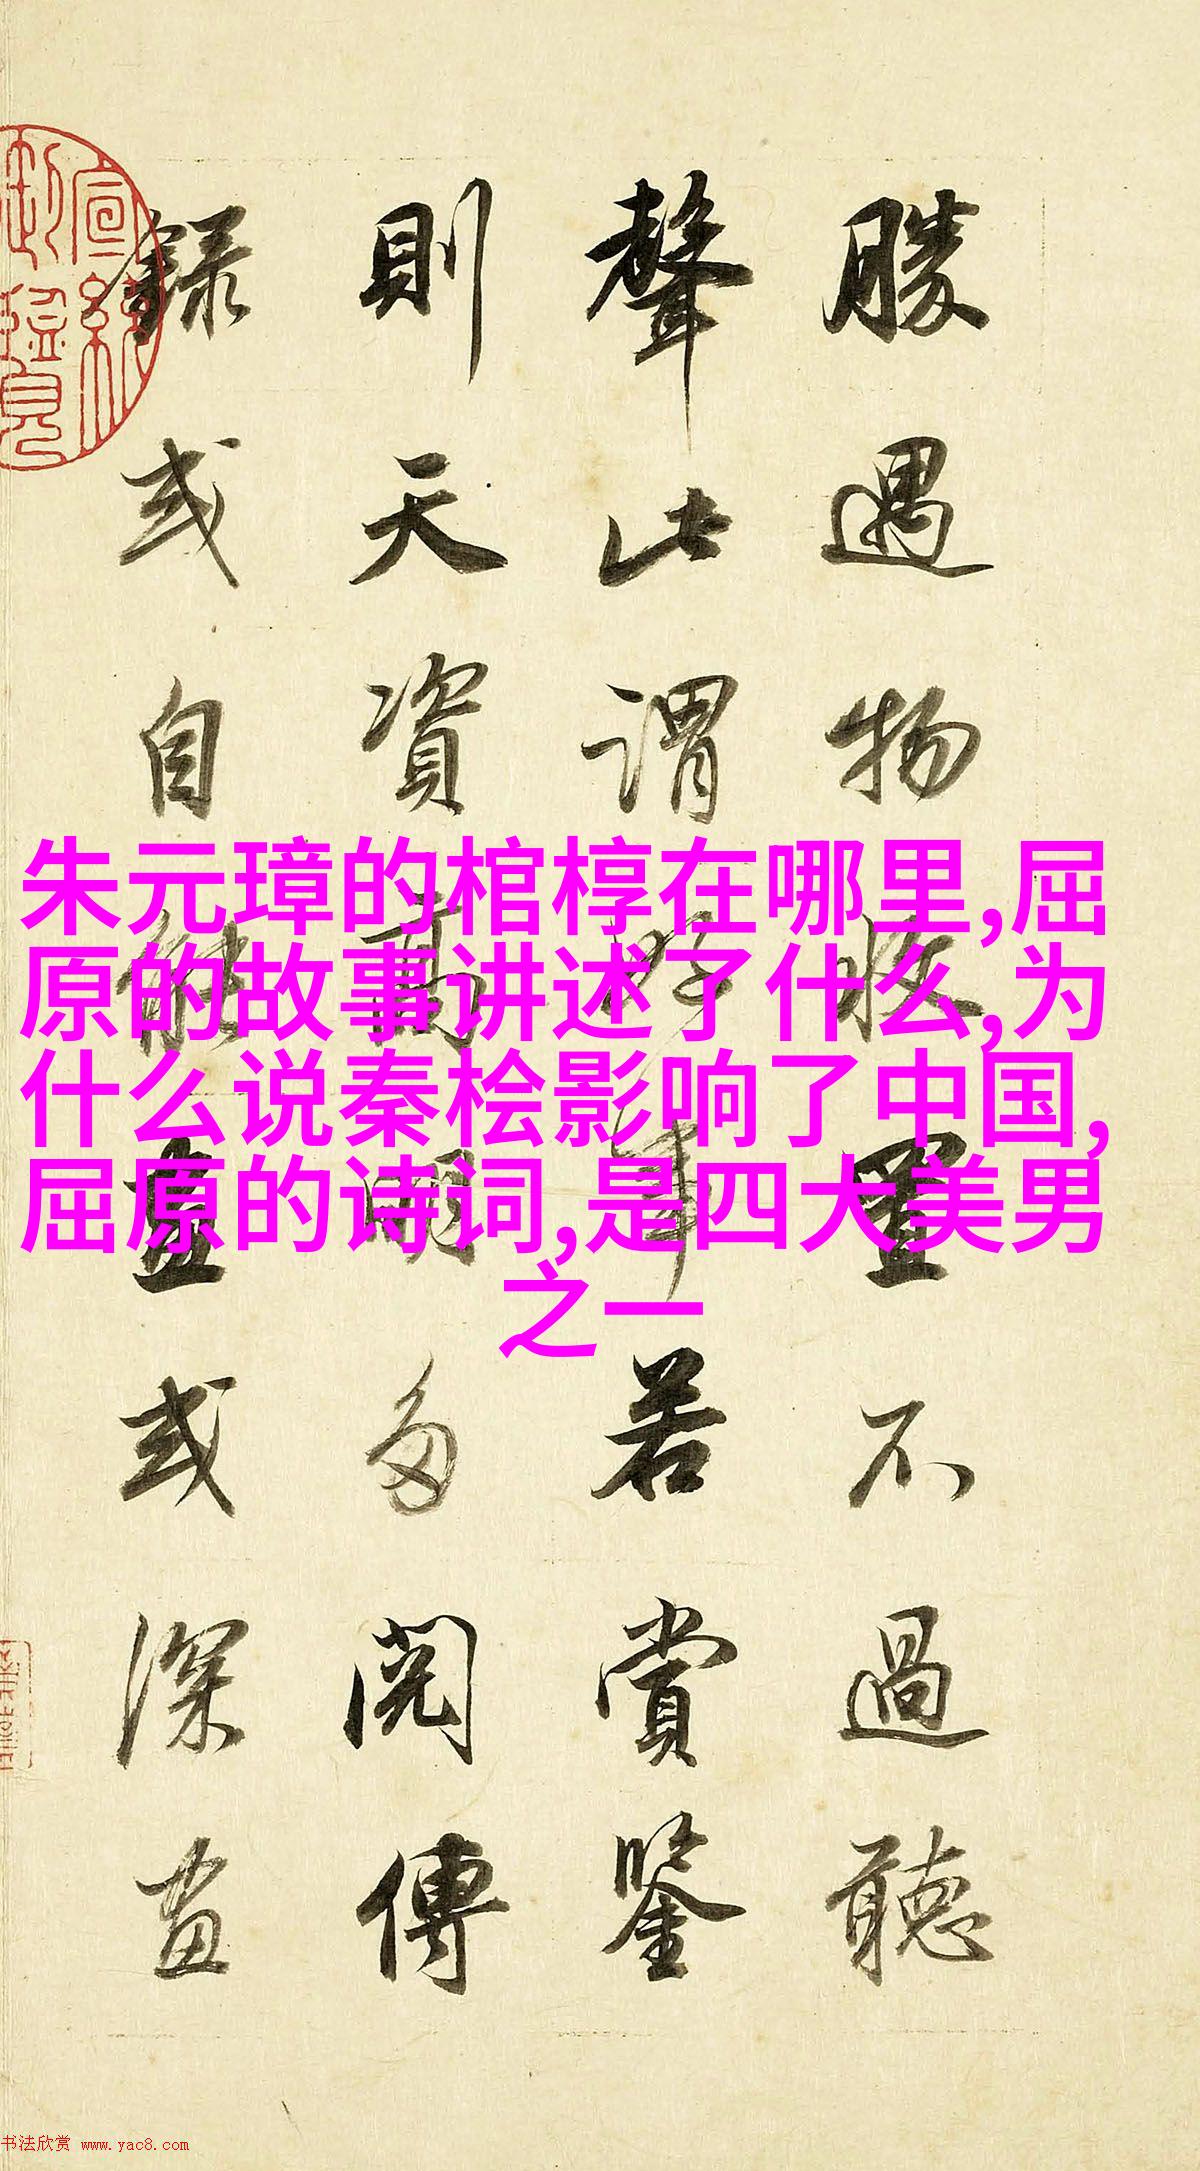 勝遇物收置不過聽
聲此謂好事若賞鑒
則天資高明多閱傳
錄或自能畫或深畫
朱元璋的棺椁在哪里,屈
原的故事讲述了什么,为
什么说秦桧影响了中国,
屈原的诗词,是四大美男
之一
书法欣赏 www.yac8.com